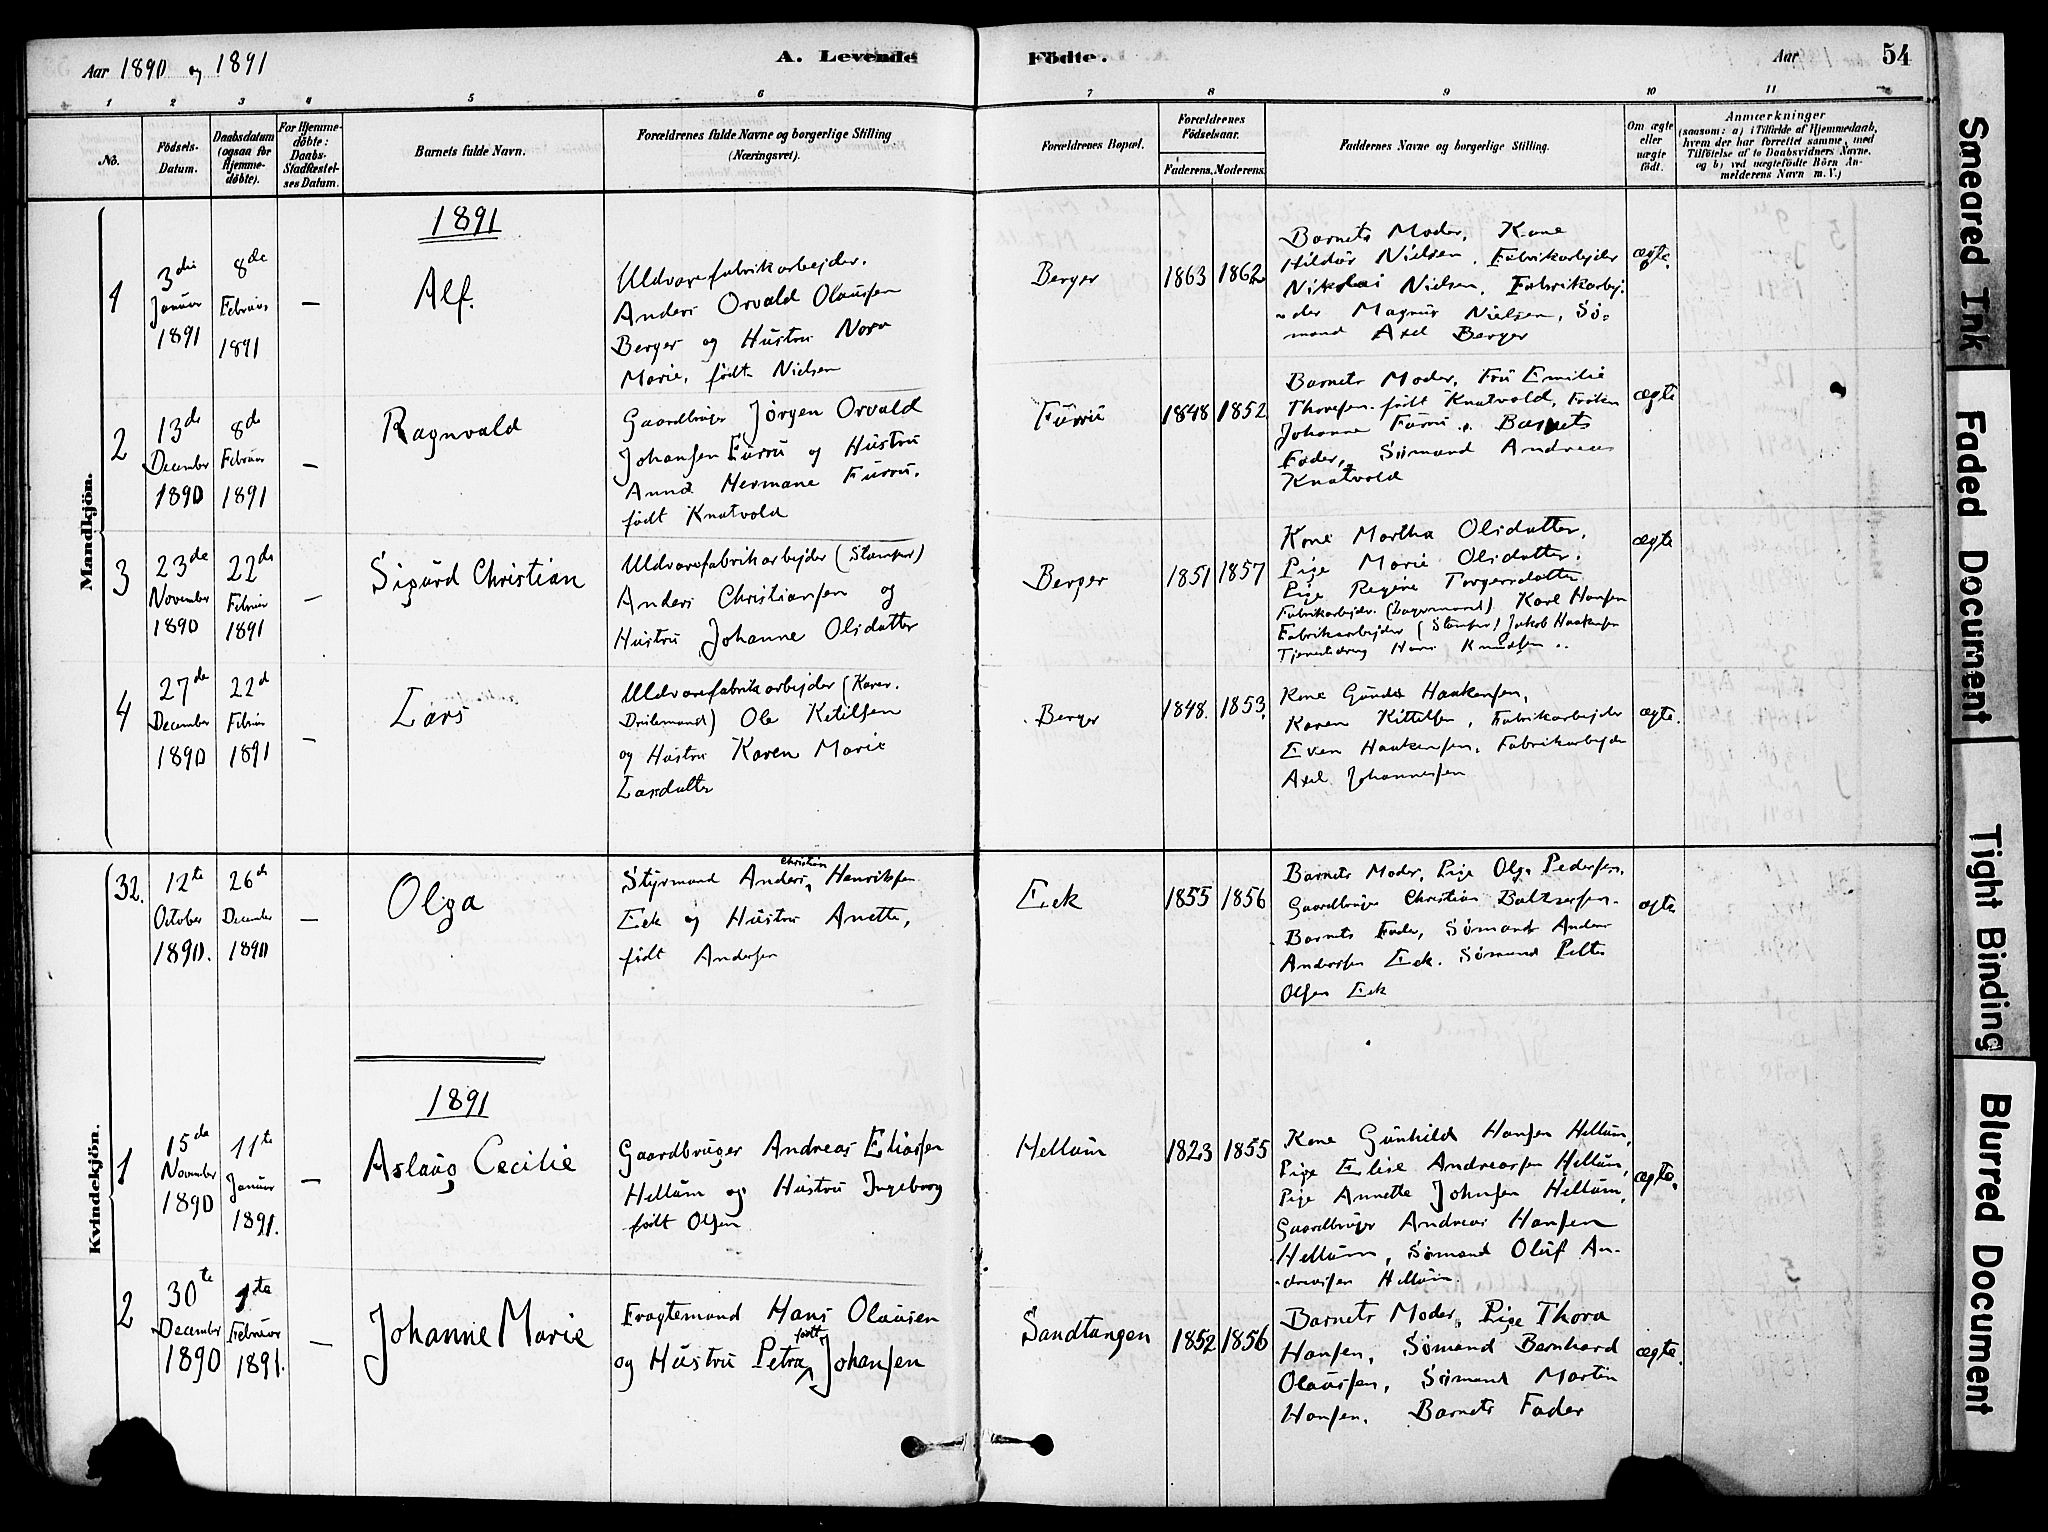 Aar 1890 og 1891
A. Levende
Födte.
Aar
54
1
2
3
4
5
6
7
8
9
10
11
No.
Födsels-
Datum.
Daabsdatum
(ogsaa for
Hjemme-
döbte).
For Hjemme-
döbte:
Daabs-
Stadfæstel-
ses Datum.
Barnets fulde Navn.
Forældrenes fulde Navne og borgerlige Stilling
(Næringsvei).
Forældrenes Bopæl.
Forældrenes
Födselsaar.
Faderens. Moderens.
Faddernes Navne og borgerlige Stilling.
Om ægte
eller
uægte
födt.
Anmærkninger
(saasom: a) i Tilfælde af Hjemmedaab,
hvem der har forrettet samme, med
Tilföielse af to Daabsvidners Navne,
og b) ved uægtefödte Börn An-
melderens Navn m. V.)
Mandkjön.
1891
1
3die
Januar
1891
8de
Februar
1891
—
Alf.
Uldvarefabrikarbejder.
Anders Orvald Olaussen
Berger og Hustru Nora
Marie, født Nielsen
Berger
1863
1862
Barnets Moder, Kone
Hildur Nielsen, Fabrikarbejder
Nikolai Nielsen, Fabrikarbej-
der Magnus Nielsen, Sø-
mand Axel Berger
ægte.
2
13de
December
1890
8de
Februar
1891
—
Ragnvald
Gaardbruger Jørgen Orvald
Johansen Furru og Hustru
Anna Hermane Furru,
født Knatvold
Furru
1848
1852
Barnets Moder, Fru Emilie
Thoresen født Knatvold, Frøken
Johanne Furru, Barnets
Fader, Sømand Andreas
Knatvold
ægte
3
23de
November
1890
22de
Februar
1891
—
Sigurd Christian
Uldvarefabrikarbejder (Stamper)
Anders Christiansen og
Hustru Johanne Olsdatter
Berger
1851
1857
Kone Martha Olsdatter,
Pige Marie Olsdatter,
Pige Regine Torgersdatter
Fabrikarbejder (Lagermand) Karl Hansen
Fabrikarbejder (Stamper) Jakob Haakensen
Hans Knudsen
ægte
4
27de
December
1890
22d
Februar
1891
—
Lars
Uldvarefabrikarbejder
Ole Ketilsen
og Hustru Karen Marie
Larsdatter
Berger
1848.
1853.
Kone Haakensen,
Karen Kittilsen, Fabrikarbejder
Even Haakensen, Fabrikarbejder
Axel Johannessen
ægte.
Kvindekjön.
32.
12te
October
1890.
26de
December
1890
—
Olga
Styrmand Anders Christian Henriksen
Eek og Hustru Anette,
født Andersen
Eek
1855
1856
Barnets Moder, Pige Olga Pedersen,
Gaardbruger Christian Baltzersen.
Barnets Fader, Sømand Anders
Andersen Eek. Sømand Petter
Olsen Eek
ægte
1891
1
15de
November
1890
11te
Januar
1891.
—
Aslaug Cecilie
Gaardbruger Andreas Eliassen
Hellum og Hustru Ingeborg
født Olsen
Hellum
1823
1855
Kone Gunhild Hansen Hellum,
Pige Elise Andreassen Hellum,
Pige Annette Johnsen Hellum,
Gaardbruger Andreas Hansen
Hellum, Sømand Oluf An-
dreassen Hellum.
ægte.
2
30te
December
1890
1te
Februar
1891.
—
Johanne Marie
Fragtemand Hans Olaussen
og Hustru Petra født Johansen
Sandtangen
1852
1856
Barnets Moder, Pige Thora
Hansen, Sømand Bernhard
Olaussen, Sømand Martin
Hansen, Barnets Fader
ægte.
Smeared Ink
Faded Document
Tight Binding
Blurred Document